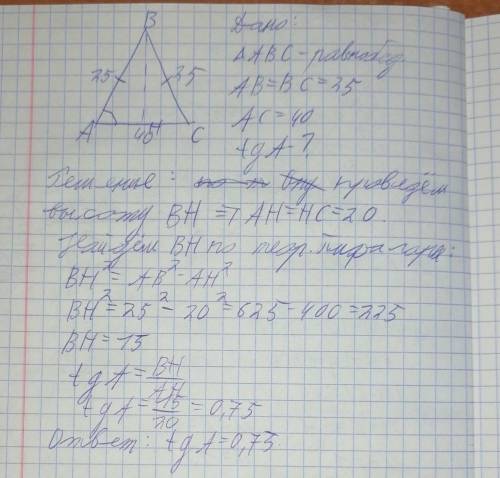 B
25
25
A
40
H
C
Дано:
ΔABC - равнобед.
AB=BC=25
AC=40
tgA-?
Решение: проведём
высоту BH ⇒ AH=HC=20.
Найдём BH по теор. Пифагора:
BH²=AB²-AH²
BH²=25²-20²=625-400=225
BH=15
tgA=BH/AH
tgA=15/20=0,75
Ответ: tgA=0,75